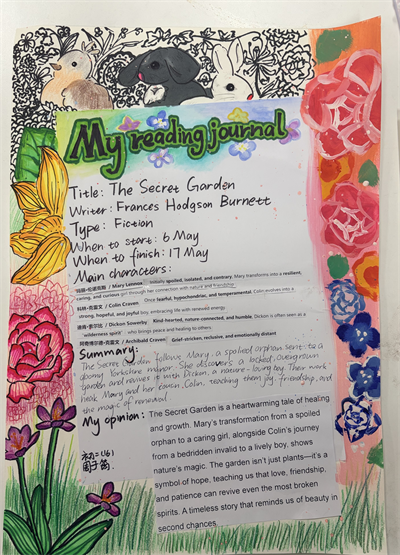 My reading journal
Title: The Secret Garden
Writer: Frances Hodgson Burnett
Type: Fiction
When to start: 6 May
When to finish: 17 May
Main characters:
玛丽·伦诺克斯 / Mary Lennox Initially spoiled, isolated, and contrary, Mary transforms into a resilient,
caring, and curious girl through her connection with nature and friendship.
科林·克雷文 / Colin Craven Once fearful, hypochondriac, and temperamental, Colin evolves into a
strong, hopeful, and joyful boy, embracing life with renewed energy.
迪肯·索尔比 / Dickon Sowerby Kind-hearted, nature-connected, and humble, Dickon is often seen as a
"wilderness spirit" who brings peace and healing to others.
阿奇博尔德·克雷文 / Archibald Craven Grief-stricken, reclusive, and emotionally distant
Summary:
The Secret Garden follows Mary, a spoiled orphan sent to a
gloomy Yorkshire manor. She discovers a locked, overgrown
garden and revives it with Dickon, a nature-loving boy. Their work
heals Mary and her cousin, Colin, teaching them joy, friendship, and
the magic of renewal.
My opinion: The Secret Garden is a heartwarming tale of healing
and growth. Mary's transformation from a spoiled
orphan to a caring girl, alongside Colin's journey
from a bedridden invalid to a lively boy, shows
nature's magic. The garden isn't just plants—it's a
symbol of hope, teaching us that love, friendship,
and patience can revive even the most broken
spirits. A timeless story that reminds us of beauty in
second chances